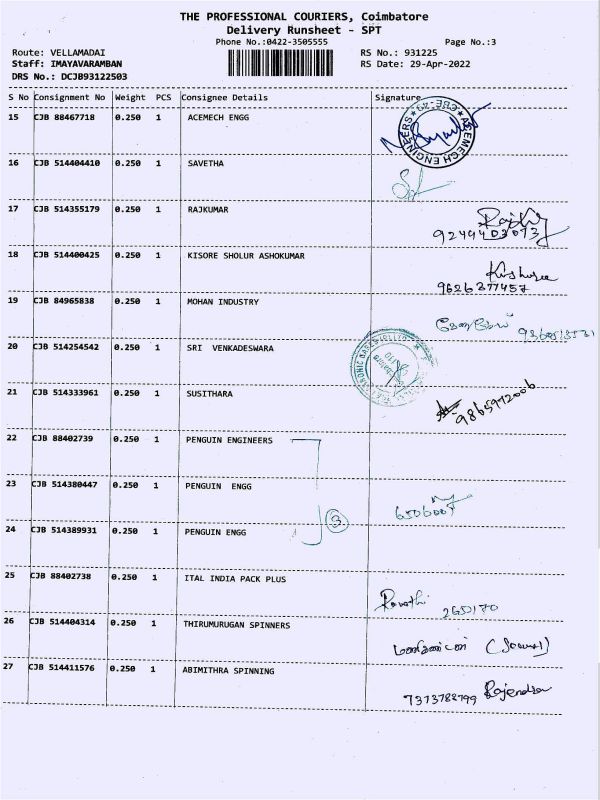 THE PROFESSIONAL COURIERS, Coimbatore
Delivery Runsheet - SPT
Phone No.:0422-3505555 Page No.:3
Route: VELLAMADAI RS No.: 931225
Staff: IMAYAVARAMBAN RS Date: 29-Apr-2022
DRS No.: DCJB93122503
S No Consignment No Weight PCS Consignee Details Signature
15 CJB 88467718 0.250 1 ACEMECH ENGG
ACEMECH ENGINEERS
CBE-29
16 CJB 514404410 0.250 1 SAVETHA
17 CJB 514355179 0.250 1 RAJKUMAR
9244403073
18 CJB 514400425 0.250 1 KISORE SHOLUR ASHOKUMAR
9626377457
19 CJB 84965838 0.250 1 MOHAN INDUSTRY
20 CJB 514254542 0.250 1 SRI VENKADESWARA
21 CJB 514333961 0.250 1 SUSITHARA
9865972006
22 CJB 88402739 0.250 1 PENGUIN ENGINEERS
23 CJB 514380447 0.250 1 PENGUIN ENGG
3
24 CJB 514389931 0.250 1 PENGUIN ENGG
25 CJB 88402738 0.250 1 ITAL INDIA PACK PLUS
Revathi 265170
26 CJB 514404314 0.250 1 THIRUMURUGAN SPINNERS
27 CJB 514411576 0.250 1 ABIMITHRA SPINNING
7373782799 Rajendra